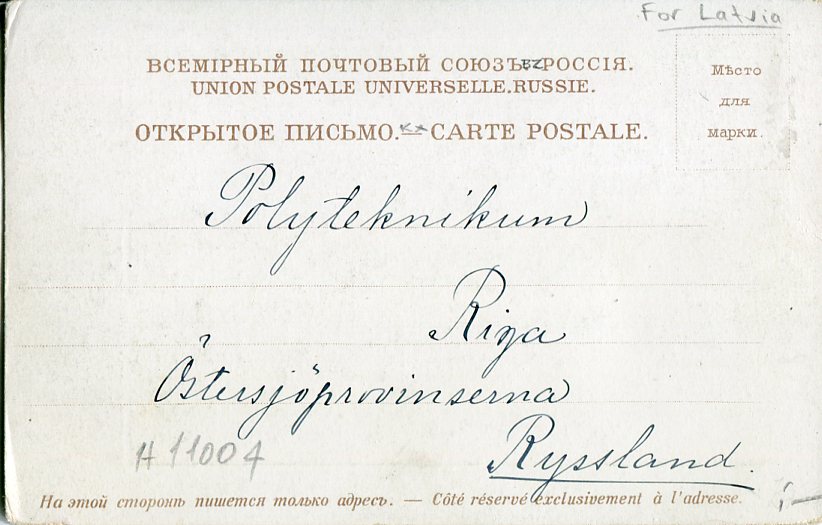 For Latvia
ВСЕМІРНЫЙ ПОЧТОВЫЙ СОЮЗЪ BZ РОССІЯ.
UNION POSTALE UNIVERSELLE. RUSSIE.
ОТКРЫТОЕ ПИСЬМО. — CARTE POSTALE.
Мѣсто
для
марки.
Polyteknikum
Riga
Östersjöprovinserna
Ryssland.
H 11004
На этой сторонѣ пишется только адресъ. — Côté réservé exclusivement à l'adresse.